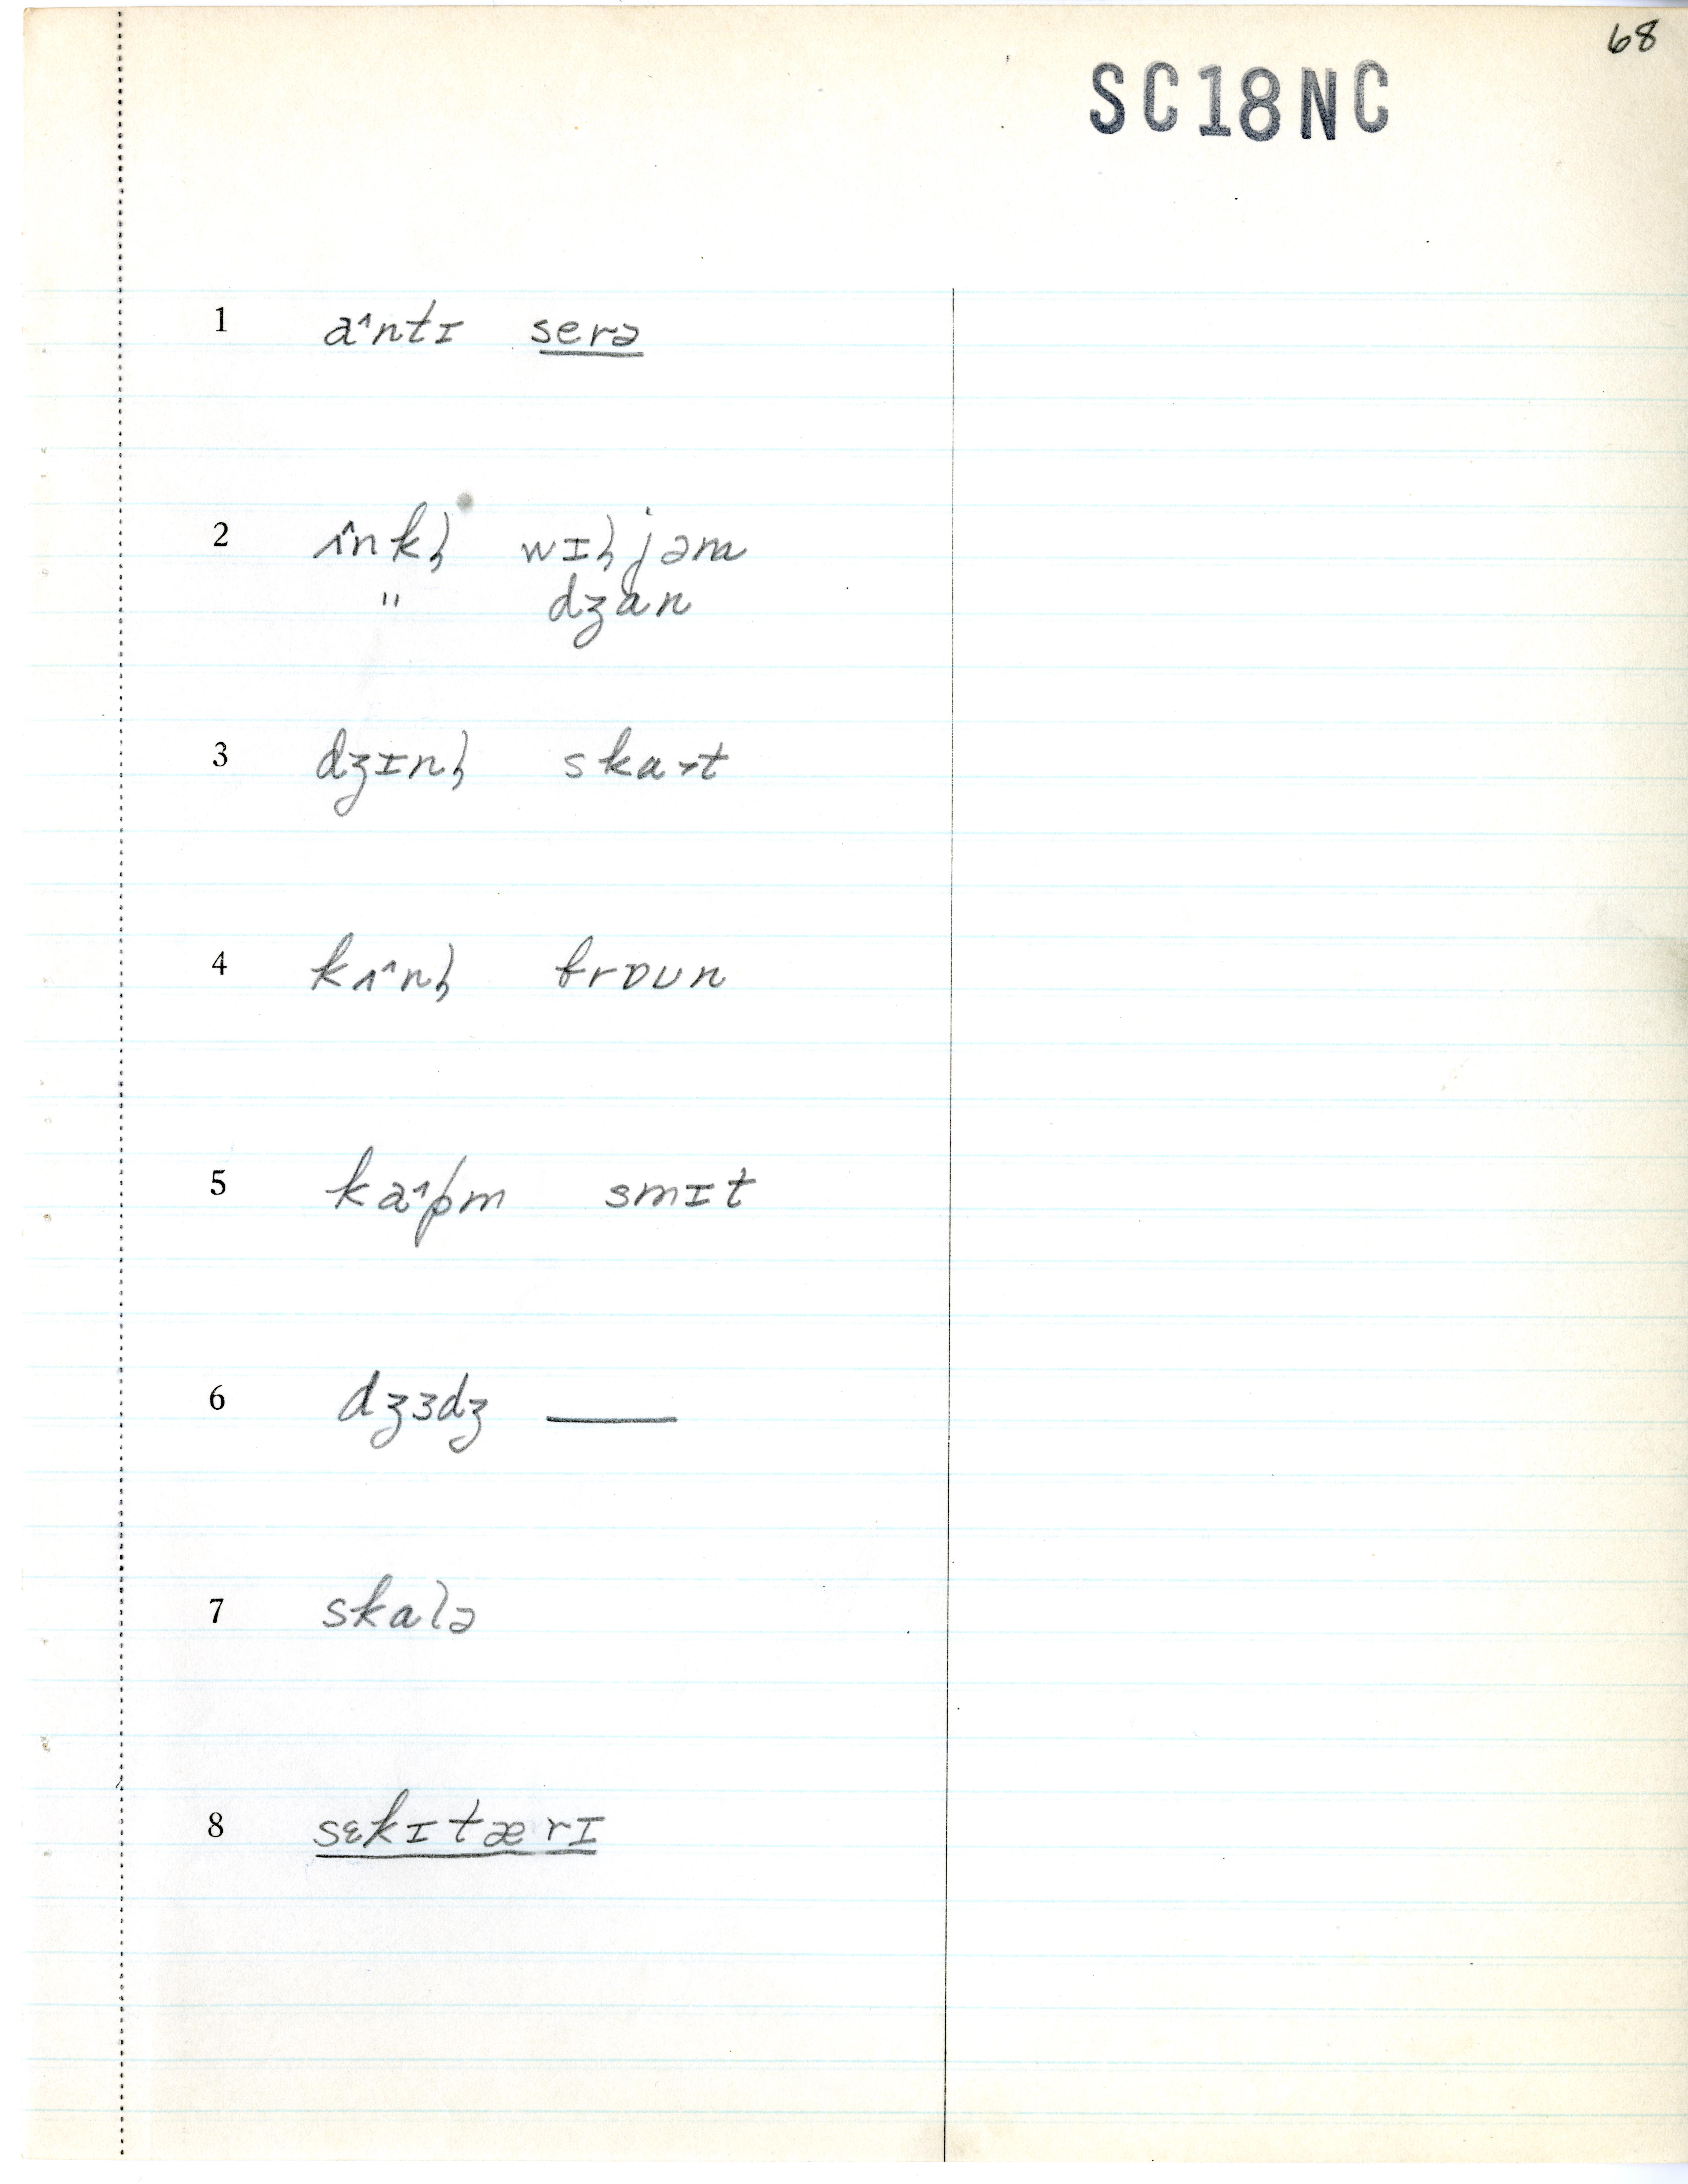 68
SC18NC
1 a˄ntɪ serə
2 ʌ̂nkl̩ wɪl̩jəm
" dʒan
3 dʒɪnl̩ ska˞t
4 kʌ˄nl̩ brɒun
5 ka˄pm smɪt
6 dʒɜdʒ ____
7 skalə
8 sɛkɪtærɪ